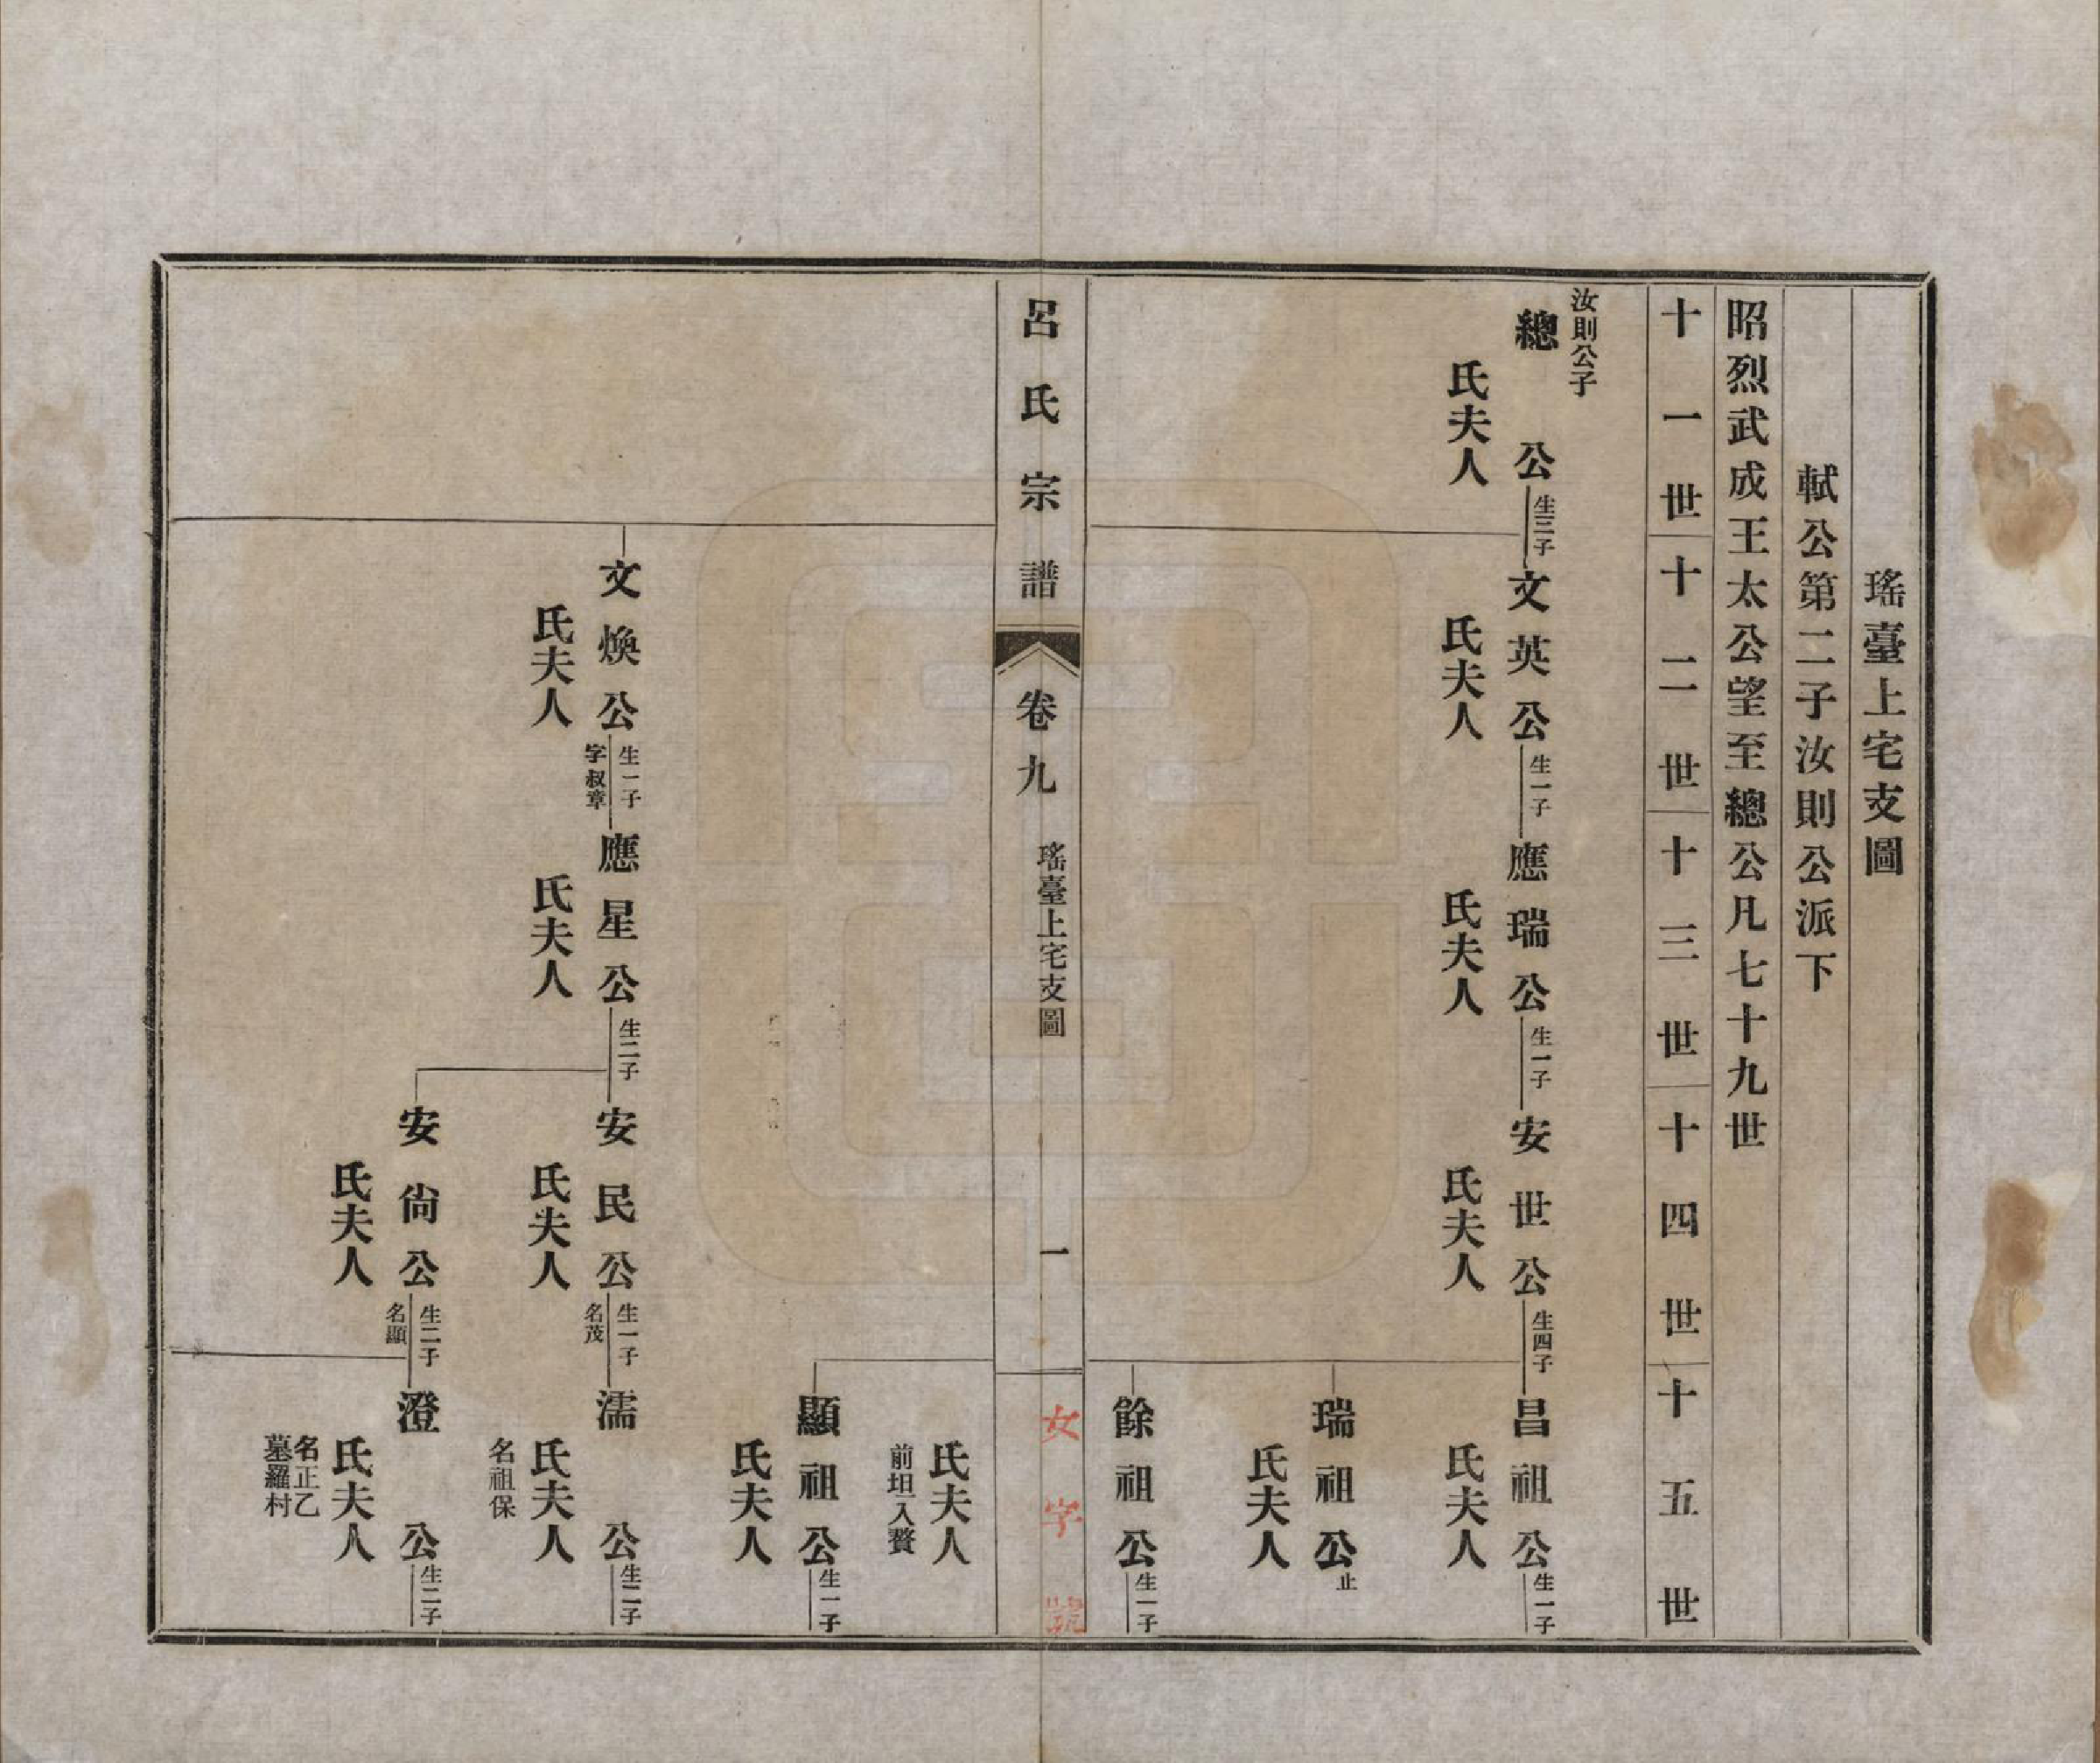 瑤臺上宅支圖
軾公第二子汝則公派下
昭烈武成王太公望至總公凡七十九世
十一世
十二世
十三世
十四世
十五世
汝則公子
總公
生三子
氏夫人
文英公
生一子
氏夫人
應瑞公
生一子
氏夫人
安世公
生四子
氏夫人
昌祖公
生一子
氏夫人
瑞祖公
止
氏夫人
餘祖公
生一子
呂氏宗譜
卷九
瑤臺上宅支圖
一
女字號
氏夫人
前坦入贅
顯祖公
生一子
氏夫人
文煥公
生一子
字叔章
氏夫人
應星公
生二子
氏夫人
安民公
生一子
名茂
氏夫人
濡公
生二子
氏夫人
名祖保
安尙公
生二子
名顯
氏夫人
澄公
生二子
氏夫人
名正乙
墓羅村